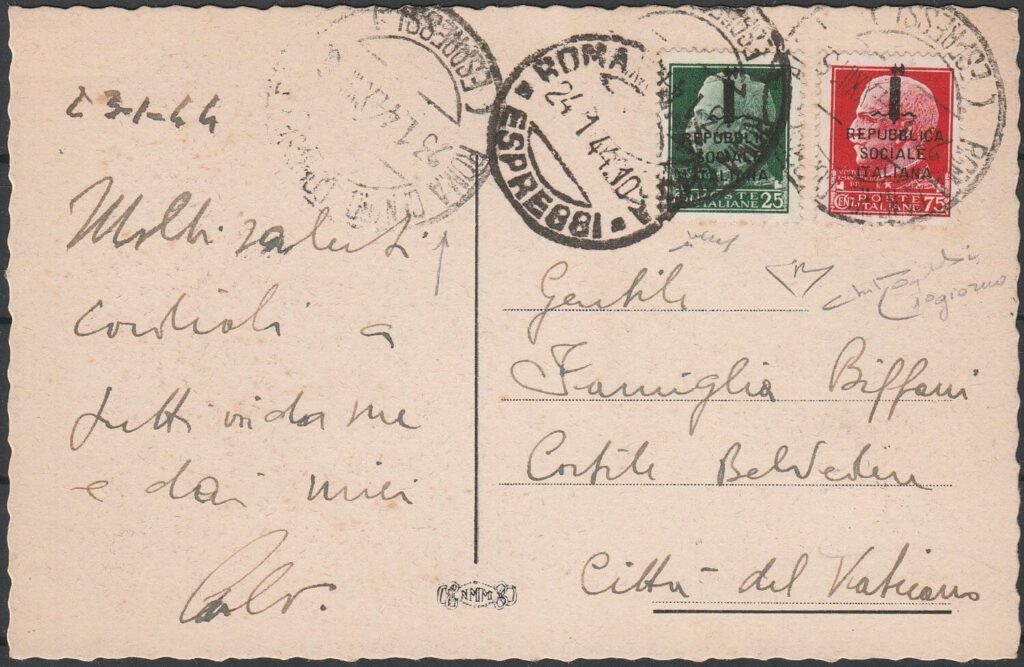 23-1-44
Molti saluti
cordiali a
tutti voi da me
e dai miei
ROMA CENTRO
(ESPRESSI)
23.1.44
ROMA
24.1.44.10
ESPRESSI
REPUBBLICA
SOCIALE
ITALIANA
POSTE
ITALIANE
25
REPUBBLICA
SOCIALE
ITALIANA
POSTE
CENT. ITALIANE 75
Gentile
Famiglia Biffani
Cortile Belvedere
Città del Vaticano
NMM